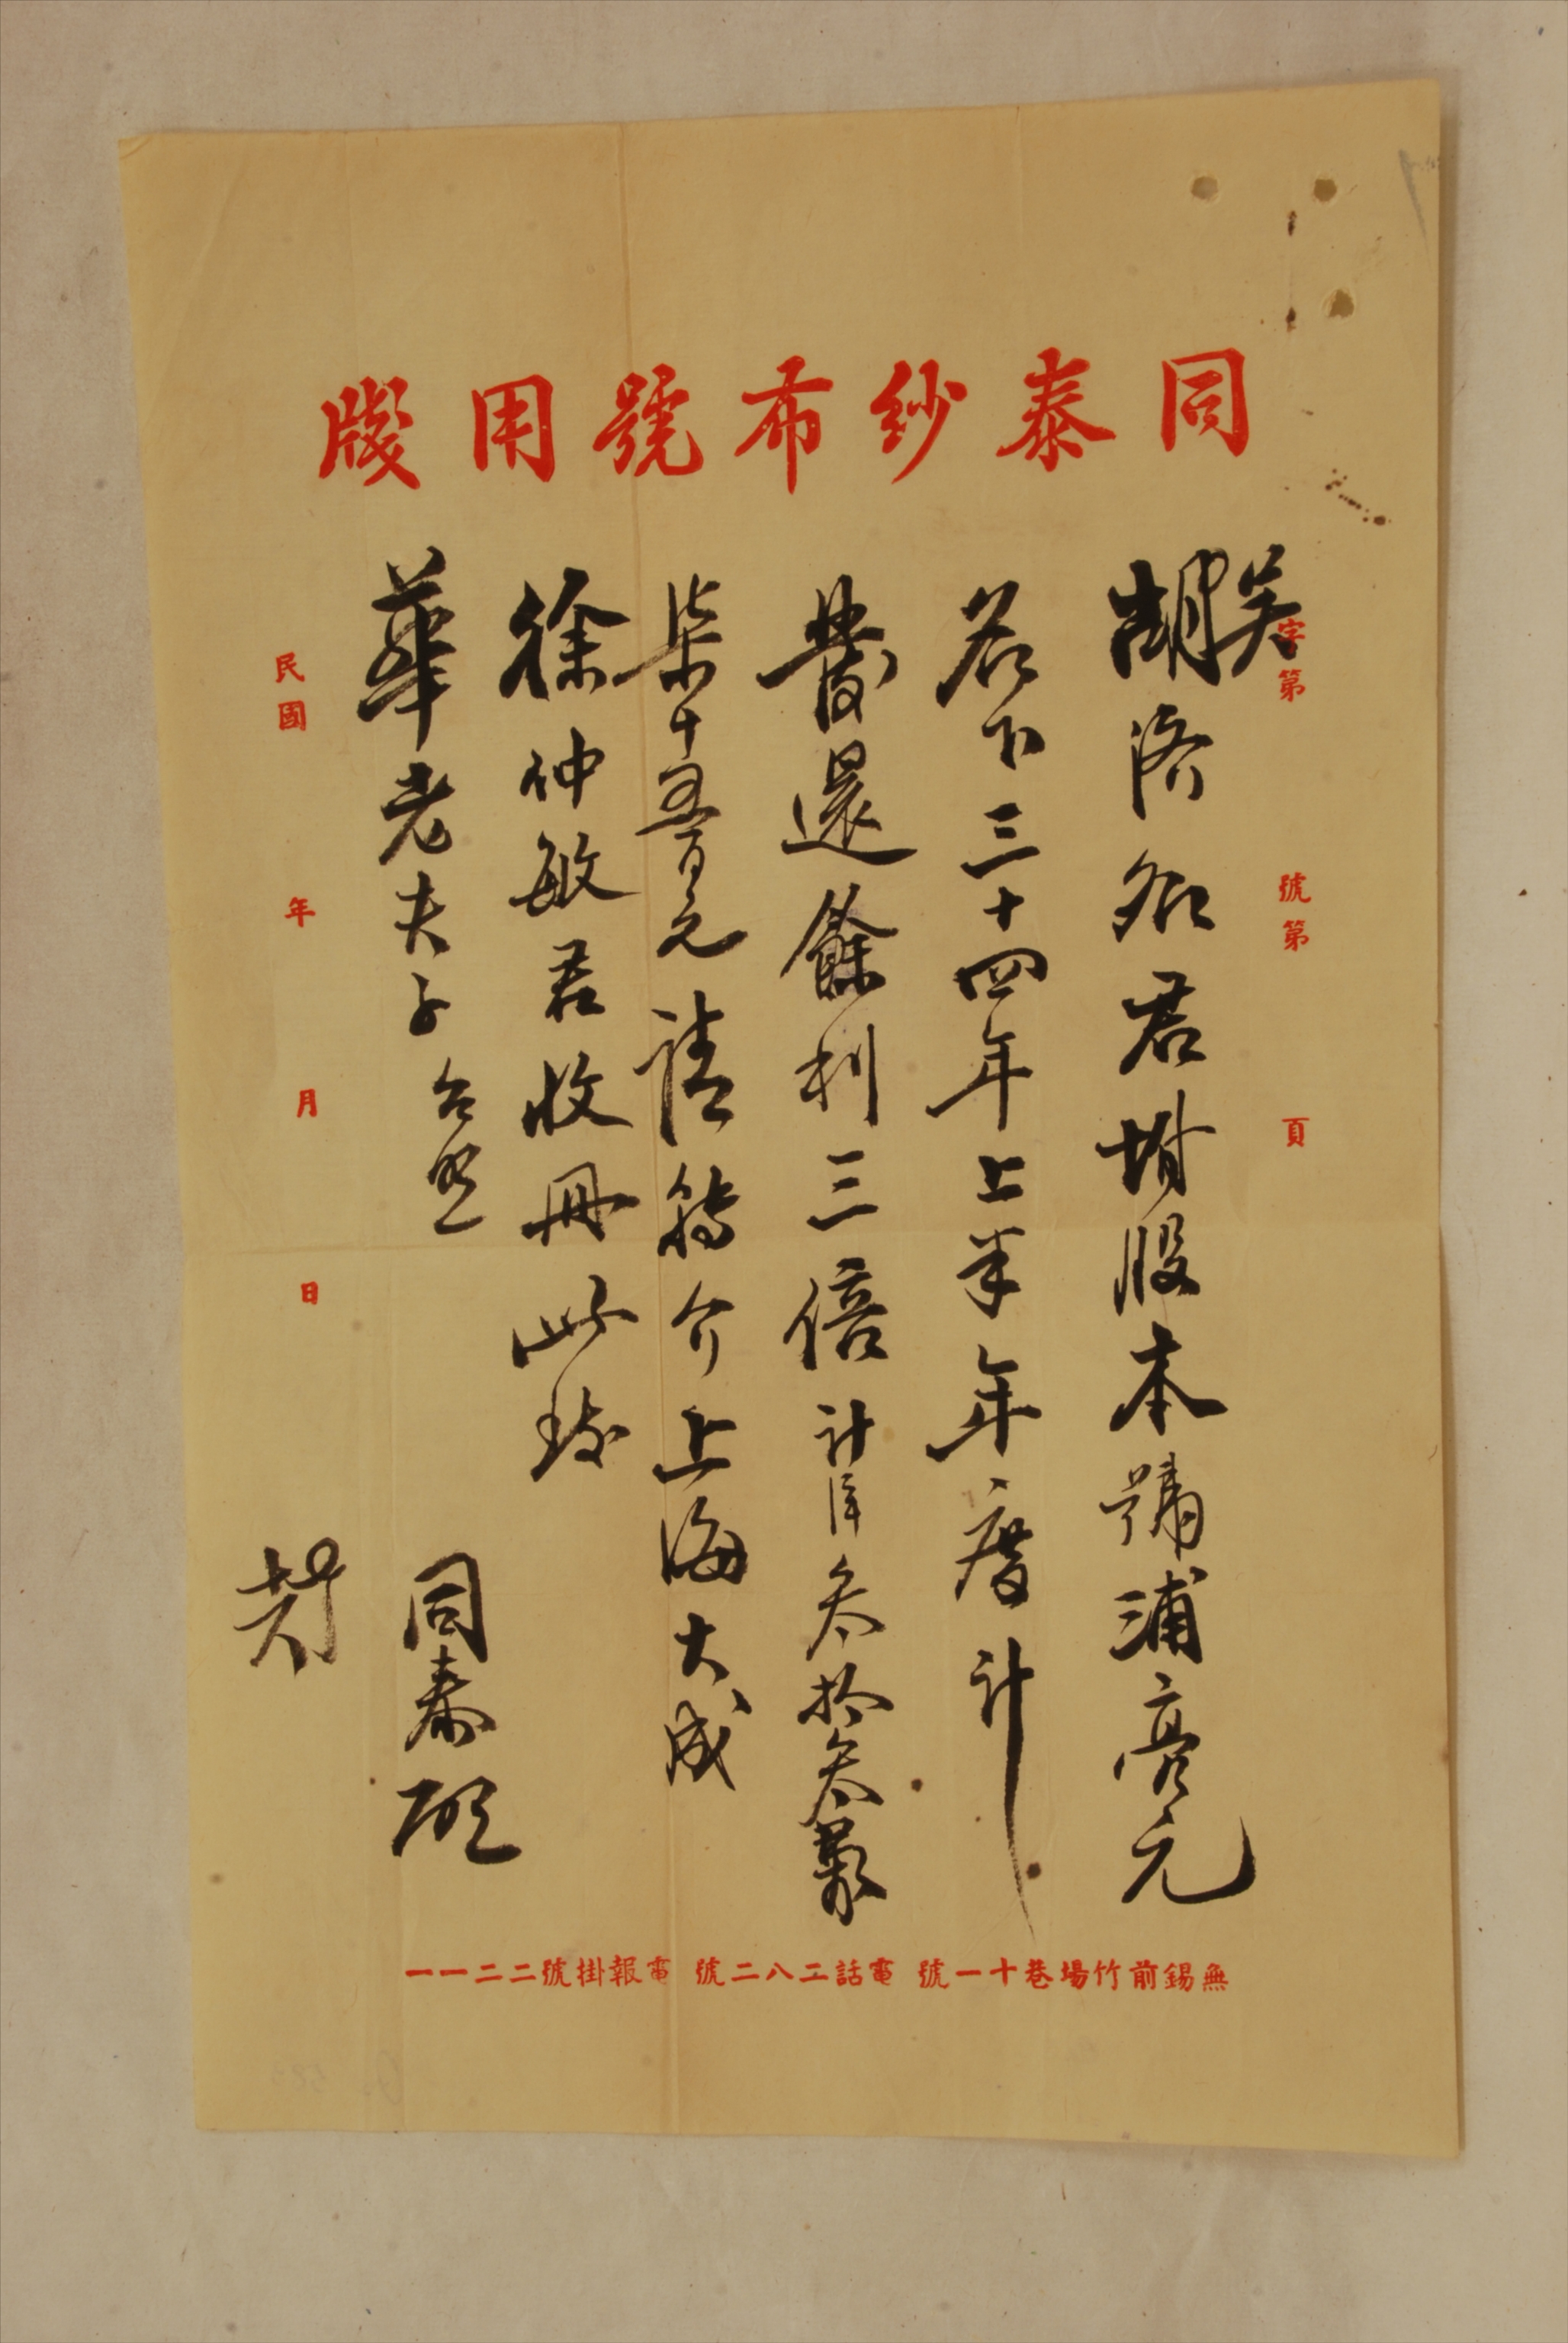 同泰紗布號用牋
字第 號第 頁
吴
胡濟名君坿股本號浦亮元
君下三十四年上半年度計
發還餘利三倍計洋叁拾叁萬
柒千五百元請轉介上海大成
徐仲敏君收冊此致
華老夫子台照
同泰啟
民國 年 月 日
無錫前竹場巷十一號 電話二八二號 電報掛號二二一一